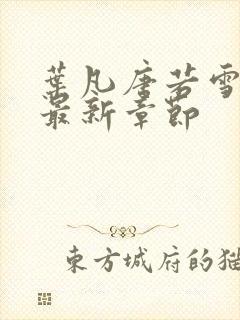 葉凡唐若雪
最新章節
東方城府的猫